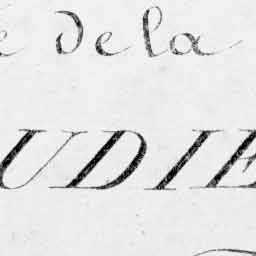 de la
UDIE